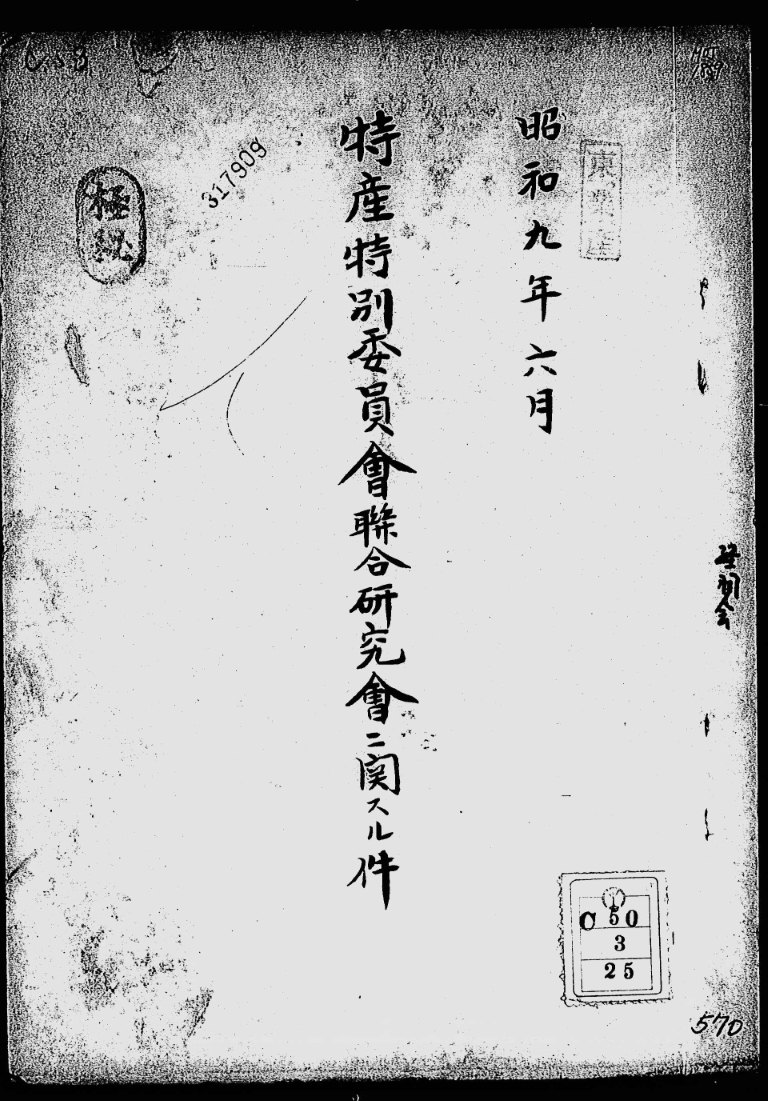 昭和九年六月
特産特別委員會聯合研究會ニ関スル件
極秘
317909
C 50
3
25
570